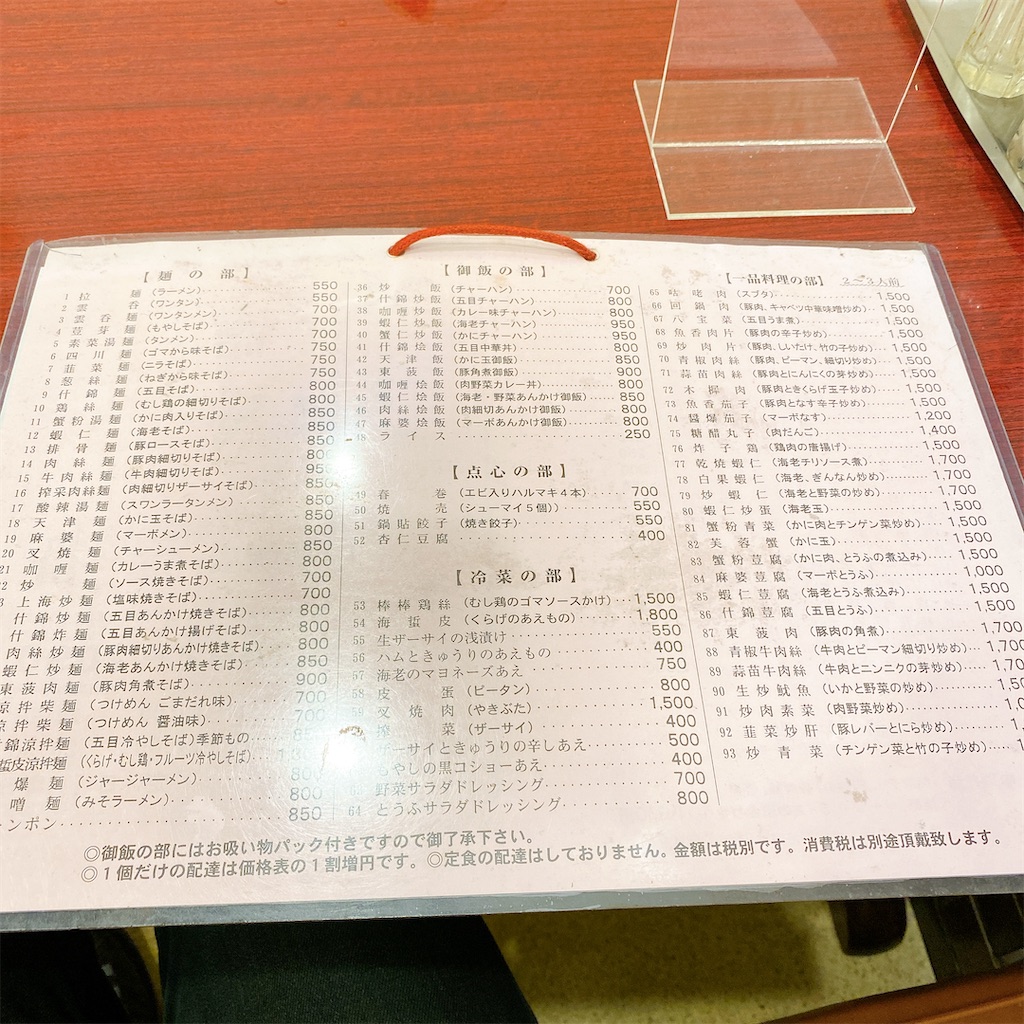 【 麺 の 部 】
1 拉 麺 (ラーメン) 550
2 雲 呑 (ワンタン) 550
3 雲 呑 麺 (ワンタンメン) 700
4 荳 芽 麺 (もやしそば) 700
5 素 菜 湯 麺 (タンメン) 700
6 四 川 麺 (ゴマから味そば) 750
7 韮 菜 麺 (ニラそば) 750
8 葱 絲 麺 (ねぎから味そば) 750
9 什 錦 麺 (五目そば) 800
10 鶏 絲 麺 (むし鶏の細切りそば) 800
11 蟹 粉 湯 麺 (かに肉入りそば) 800
12 蝦 仁 麺 (海老そば) 850
13 排 骨 麺 (豚ロースそば) 850
14 肉 絲 麺 (豚肉細切りそば) 800
15 牛 肉 絲 麺 (牛肉細切りそば) 950
16 搾菜肉絲麺 (肉細切りザーサイそば) 850
17 酸 辣 湯 麺 (スワンラータンメン) 850
18 天 津 麺 (かに玉そば) 850
19 麻 婆 麺 (マーボメン) 800
20 叉 焼 麺 (チャーシューメン) 850
21 咖 喱 麺 (カレーうま煮そば) 800
22 炒 麺 (ソース焼きそば) 700
3 上 海 炒 麺 (塩味焼きそば) 700
什 錦 炒 麺 (五目あんかけ焼きそば) 800
什 錦 炸 麺 (五目あんかけ揚げそば) 800
肉 絲 炒 麺 (豚肉細切りあんかけ焼きそば) 800
蝦 仁 炒 麺 (海老あんかけ焼きそば) 850
東 菠 肉 麺 (豚肉角煮そば) 900
涼 拌 柴 麺 (つけめん ごまだれ味) 700
涼 拌 柴 麺 (つけめん 醤油味) 700
錦 涼 拌 麺 (五目冷やしそば)季節もの
皮涼拌麺 (くらげ・むし鶏・フルーツ冷やしそば)
爆 麺 (ジャージャーメン) 800
噌 麺 (みそラーメン) 800
ンポン 850
【 御 飯 の 部 】
36 炒 飯 (チャーハン) 700
37 什 錦 炒 飯 (五目チャーハン) 800
38 咖 喱 炒 飯 (カレー味チャーハン) 800
39 蝦 仁 炒 飯 (海老チャーハン) 950
40 蟹 仁 炒 飯 (かにチャーハン) 950
41 什 錦 烩 飯 (五目中華丼) 800
42 天 津 飯 (かに玉御飯) 850
43 東 菠 飯 (豚角煮御飯) 900
44 咖 喱 烩 飯 (肉野菜カレー丼) 800
45 蝦 仁 烩 飯 (海老・野菜あんかけ御飯) 850
46 肉 絲 烩 飯 (肉細切あんかけ御飯) 800
47 麻 婆 烩 飯 (マーボあんかけ御飯) 800
48 ラ イ ス 250
【 点 心 の 部 】
49 春 巻 (エビ入りハルマキ4本) 700
50 焼 売 (シューマイ5個)) 550
51 鍋 貼 餃 子 (焼き餃子) 550
52 杏 仁 豆 腐 400
【 冷 菜 の 部 】
53 棒 棒 鶏 絲 (むし鶏のゴマソースかけ) 1,500
54 海 蜇 皮 (くらげのあえもの) 1,800
55 生ザーサイの浅漬け 550
56 ハムときゅうりのあえもの 400
57 海老のマヨネーズあえ 750
58 皮 蛋 (ピータン) 800
59 叉 焼 肉 (やきぶた) 1,500
搾 菜 (ザーサイ) 400
ザーサイときゅうりの辛しあえ 500
もやしの黒コショーあえ 400
63 野菜サラダドレッシング 700
64 とうふサラダドレッシング 800
【一品料理の部】 2〜3人前
65 咕 咾 肉 (スブタ) 1,500
66 回 鍋 肉 (豚肉、キャベツ中華味噌炒め) 1,500
67 八 宝 菜 (五目うま煮) 1,500
68 魚 香 肉 片 (豚肉の辛子炒め) 1,500
69 炒 肉 片 (豚肉、しいたけ、竹の子炒め) 1,500
70 青 椒 肉 絲 (豚肉、ピーマン、細切り炒め) 1,500
71 蒜 苗 肉 絲 (豚肉とにんにくの芽炒め) 1,500
72 木 樨 肉 (豚肉ときくらげ玉子炒め) 1,500
73 魚 香 茄 子 (豚肉となす辛子炒め) 1,500
74 醤 爆 茄 子 (マーボなす) 1,200
75 糖 醋 丸 子 (肉だんご) 1,400
76 炸 子 鶏 (鶏肉の唐揚げ) 1,500
77 乾 焼 蝦 仁 (海老チリソース煮) 1,700
78 白 果 蝦 仁 (海老、ぎんなん炒め) 1,700
79 炒 蝦 仁 (海老と野菜の炒め) 1,700
80 蝦 仁 炒 蛋 (海老玉) 1,500
81 蟹 粉 青 菜 (かに肉とチンゲン菜炒め) 1,500
82 芙 蓉 蟹 (かに玉) 1,500
83 蟹 粉 荳 腐 (かに肉、とうふの煮込み) 1,500
84 麻 婆 荳 腐 (マーボとうふ) 1,000
85 蝦 仁 荳 腐 (海老とうふ煮込み) 1,500
86 什 錦 荳 腐 (五目とうふ) 1,500
87 東 菠 肉 (豚肉の角煮) 1,700
88 青椒牛肉絲 (牛肉とピーマン細切り炒め) 1,700
89 蒜苗牛肉絲 (牛肉とニンニクの芽炒め) 1,70
90 生 炒 魷 魚 (いかと野菜の炒め) 1,50
91 炒 肉 素 菜 (肉野菜炒め)
92 韮 菜 炒 肝 (豚レバーとにら炒め)
93 炒 青 菜 (チンゲン菜と竹の子炒め)
◎御飯の部にはお吸い物パック付きですので御了承下さい。
◎1個だけの配達は価格表の1割増円です。 ◎定食の配達はしておりません。 金額は税別です。 消費税は別途頂戴致します。